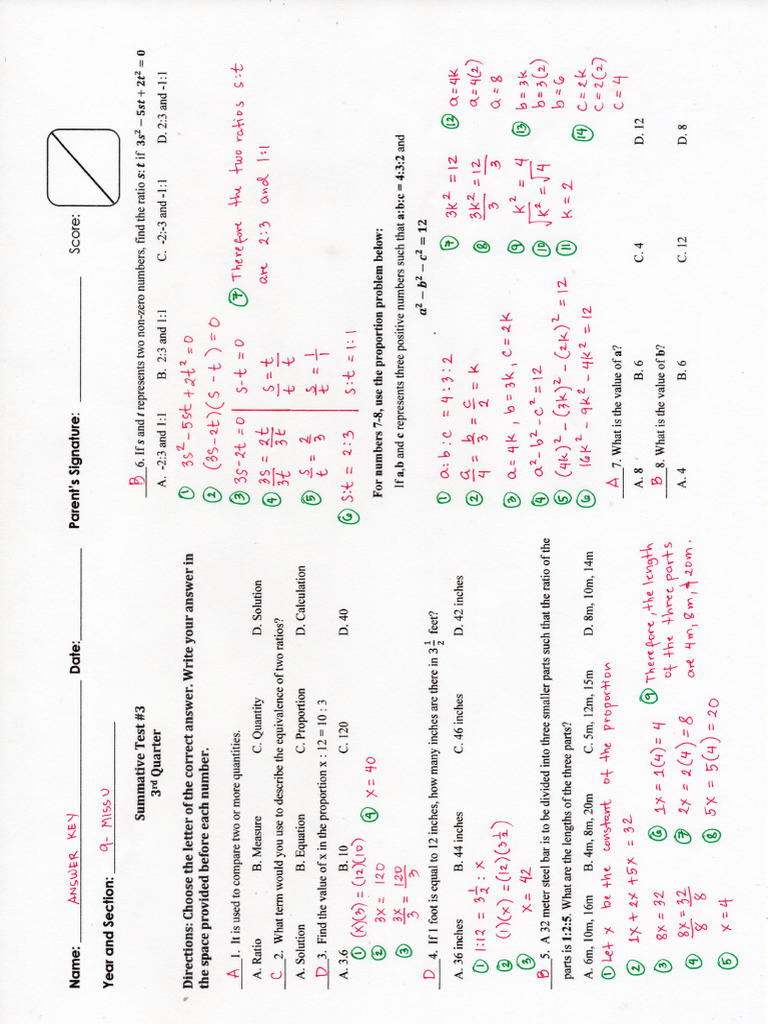 Name: ANSWER KEY Date: Parent's Signature: Score:
Year and Section: 9 - MISSU
Summative Test #3
3rd Quarter
Directions: Choose the letter of the correct answer. Write your answer in
the space provided before each number.
A 1. It is used to compare two or more quantities.
A. Ratio B. Measure C. Quantity D. Solution
C 2. What term would you use to describe the equivalence of two ratios?
A. Solution B. Equation C. Proportion D. Calculation
D 3. Find the value of x in the proportion x : 12 = 10 : 3
A. 3.6 B. 10 C. 120 D. 40
① (x)(3) = (12)(10)
② 3x = 120
③ 3x/3 = 120/3
④ x = 40
D 4. If 1 foot is equal to 12 inches, how many inches are there in 3 1/2 feet?
A. 36 inches B. 44 inches C. 46 inches D. 42 inches
① 1:12 = 3 1/2 : x
② (1)(x) = (12)(3 1/2)
③ x = 42
B 5. A 32 meter steel bar is to be divided into three smaller parts such that the ratio of the
parts is 1:2:5. What are the lengths of the three parts?
A. 6m, 10m, 16m B. 4m, 8m, 20m C. 5m, 12m, 15m D. 8m, 10m, 14m
① Let x be the constant of the proportion
② 1x + 2x + 5x = 32
③ 8x = 32
④ 8x/8 = 32/8
⑤ x = 4
⑥ 1x = 1(4) = 4
⑦ 2x = 2(4) = 8
⑧ 5x = 5(4) = 20
⑨ Therefore, the length
of the three parts
are 4m, 8m, & 20m.
B 6. If s and t represents two non-zero numbers, find the ratio s: t if 3s² − 5st + 2t² = 0
A. -2:3 and 1:1 B. 2:3 and 1:1 C. -2:-3 and -1:1 D. 2:3 and -1:1
① 3s² - 5st + 2t² = 0
② (3s - 2t)(s - t) = 0
③ 3s - 2t = 0 | s - t = 0
④ 3s/3t = 2t/3t | s/t = t/t
⑤ s/t = 2/3 | s/t = 1/1
⑥ s:t = 2:3 | s:t = 1:1
⑦ Therefore the two ratios s:t
are 2:3 and 1:1
For numbers 7-8, use the proportion problem below:
If a,b and c represents three positive numbers such that a:b:c = 4:3:2 and
a² − b² − c² = 12
① a:b:c = 4:3:2
② a/4 = b/3 = c/2 = k
③ a = 4k, b = 3k, c = 2k
④ a² - b² - c² = 12
⑤ (4k)² - (3k)² - (2k)² = 12
⑥ 16k² - 9k² - 4k² = 12
⑦ 3k² = 12
⑧ 3k²/3 = 12/3
⑨ k² = 4
⑩ √k² = √4
⑪ k = 2
⑫ a = 4k
a = 4(2)
a = 8
⑬ b = 3k
b = 3(2)
b = 6
⑭ c = 2k
c = 2(2)
c = 4
A 7. What is the value of a?
A. 8 B. 6 C. 4 D. 12
B 8. What is the value of b?
A. 4 B. 6 C. 12 D. 8